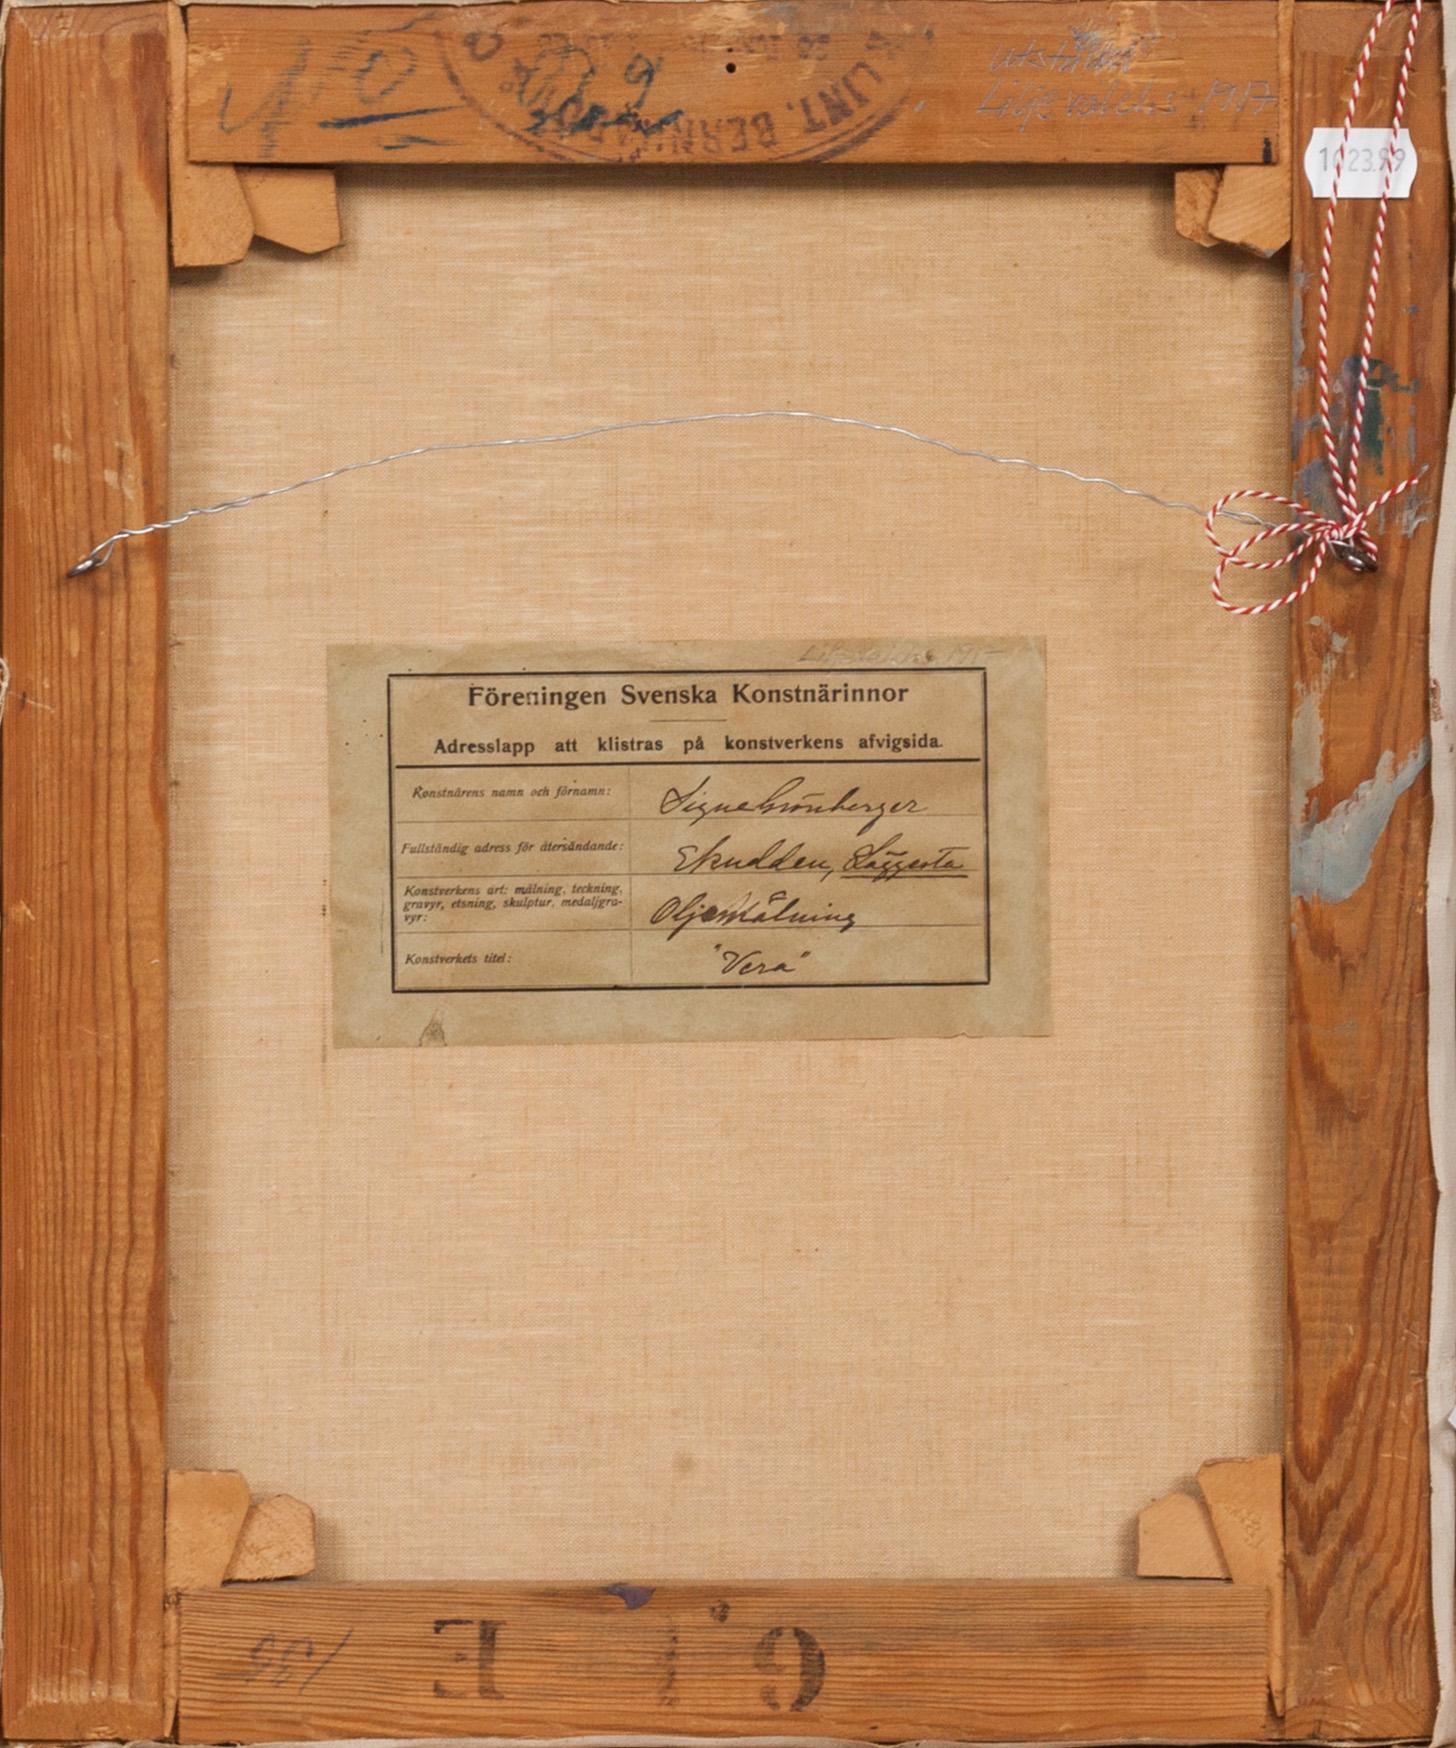 LINT. BERNHARD
utställd
Liljevalchs 1917
1023.99
Liljevalchs 1917
Föreningen Svenska Konstnärinnor
Adresslapp att klistras på konstverkens afvigsida.
Konstnärens namn och förnamn: Signe Grönberger
Fullständig adress för återsändande: Ekudden, Läggesta
Konstverkens art: målning, teckning,
gravyr, etsning, skulptur, medaljgra-
vyr: Oljemålning
Konstverkets titel: "Vera"
135